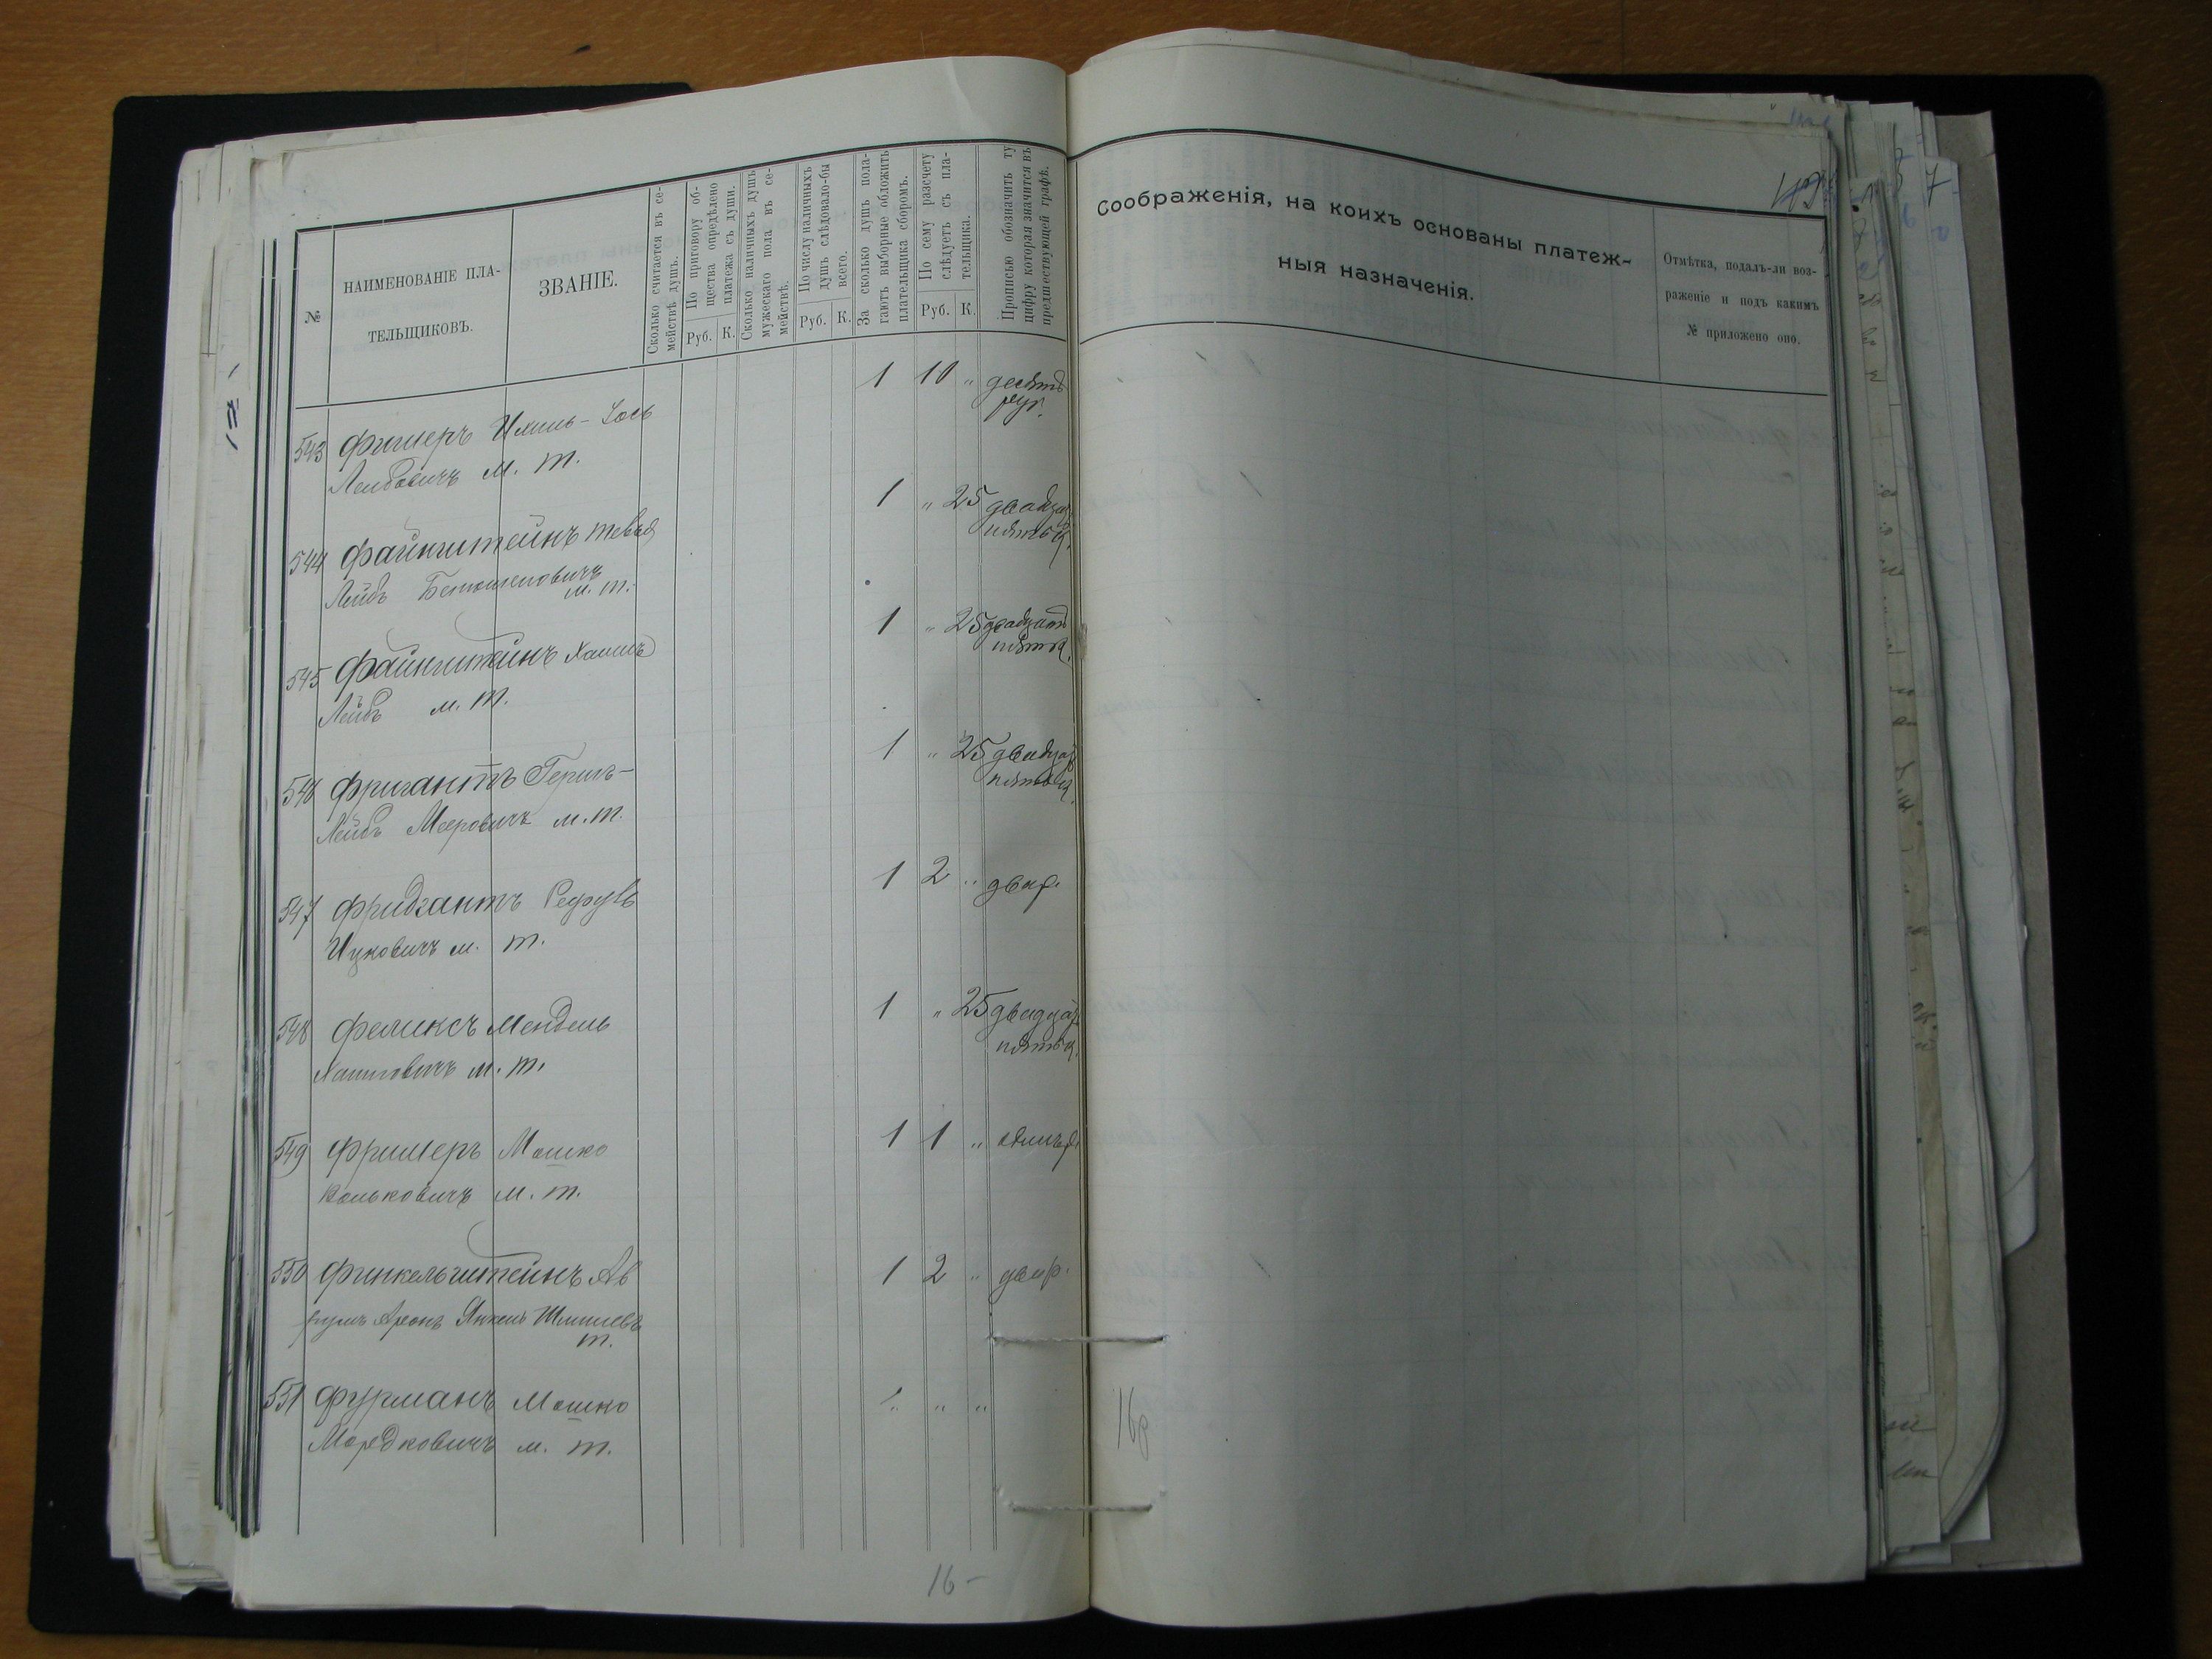 №
НАИМЕНОВАНІЕ ПЛА-
ТЕЛЬЩИКОВЪ.
ЗВАНІЕ.
Сколько считается въ се-
мействѣ душъ.
По приговору об-
щества опредѣлено
платежа съ души.
Руб. К.
Сколько наличныхъ душъ
мужескаго пола въ се-
мействѣ.
По числу наличныхъ
душъ слѣдовало-бы
всего.
Руб. К.
За сколько душъ пола-
гаютъ выборные обложить
плательщика сборомъ.
По сему разсчету
слѣдуетъ съ пла-
тельщика.
Руб. К.
Прописью обозначить ту
цифру которая значится въ
предшествующей графѣ.
543 Фишеръ
Лейбовичъ м. т.
1 10 " десять
руб.
544 Файнштейнъ Тевья
Лейбъ м. т.
1 " 25 двадцат
пять к.
545 Файнштейнъ Хаимъ
Лейбъ м. т.
1 " 25 двадцать
пять к.
546 Фригантъ Гершъ-
Лейбъ Мееровичъ м. т.
1 " 25 двадцат
пять к.
547 Фридгантъ
Ицковичъ м. т.
1 2 " два р.
548 Феликсъ Мендель
м. т.
1 " 25 двадцат
пять к.
549 Фришеръ Мошко
Вольковичъ м. т.
1 1 " одинъ р.
550 Финкельштейнъ Ав
румъ Аронъ Янкель
т.
1 2 " два р.
551 Фурманъ Мошко
Мордковичъ м. т.
" " "
16 -
Соображенія, на коихъ основаны платеж-
ныя назначенія.
Отмѣтка, подалъ-ли воз-
раженіе и подъ какимъ
№ приложено оно.
168